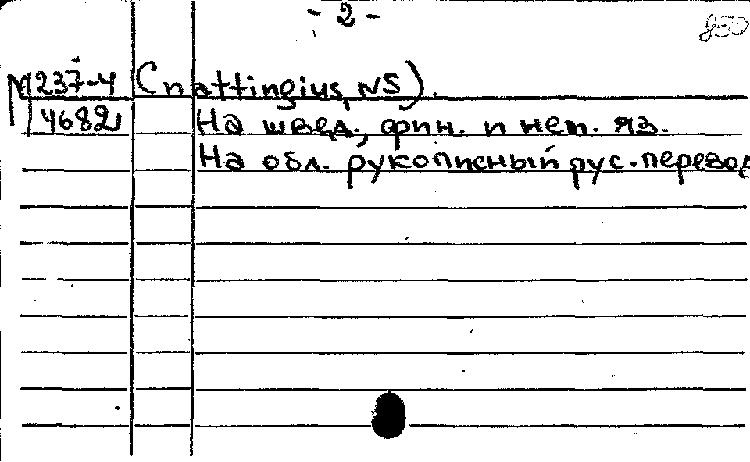 - 2 -
850
М237-4 (Cnattingius, N5).
4682
На швед., фин. и нем. яз.
На обл. рукописный рус. перевод